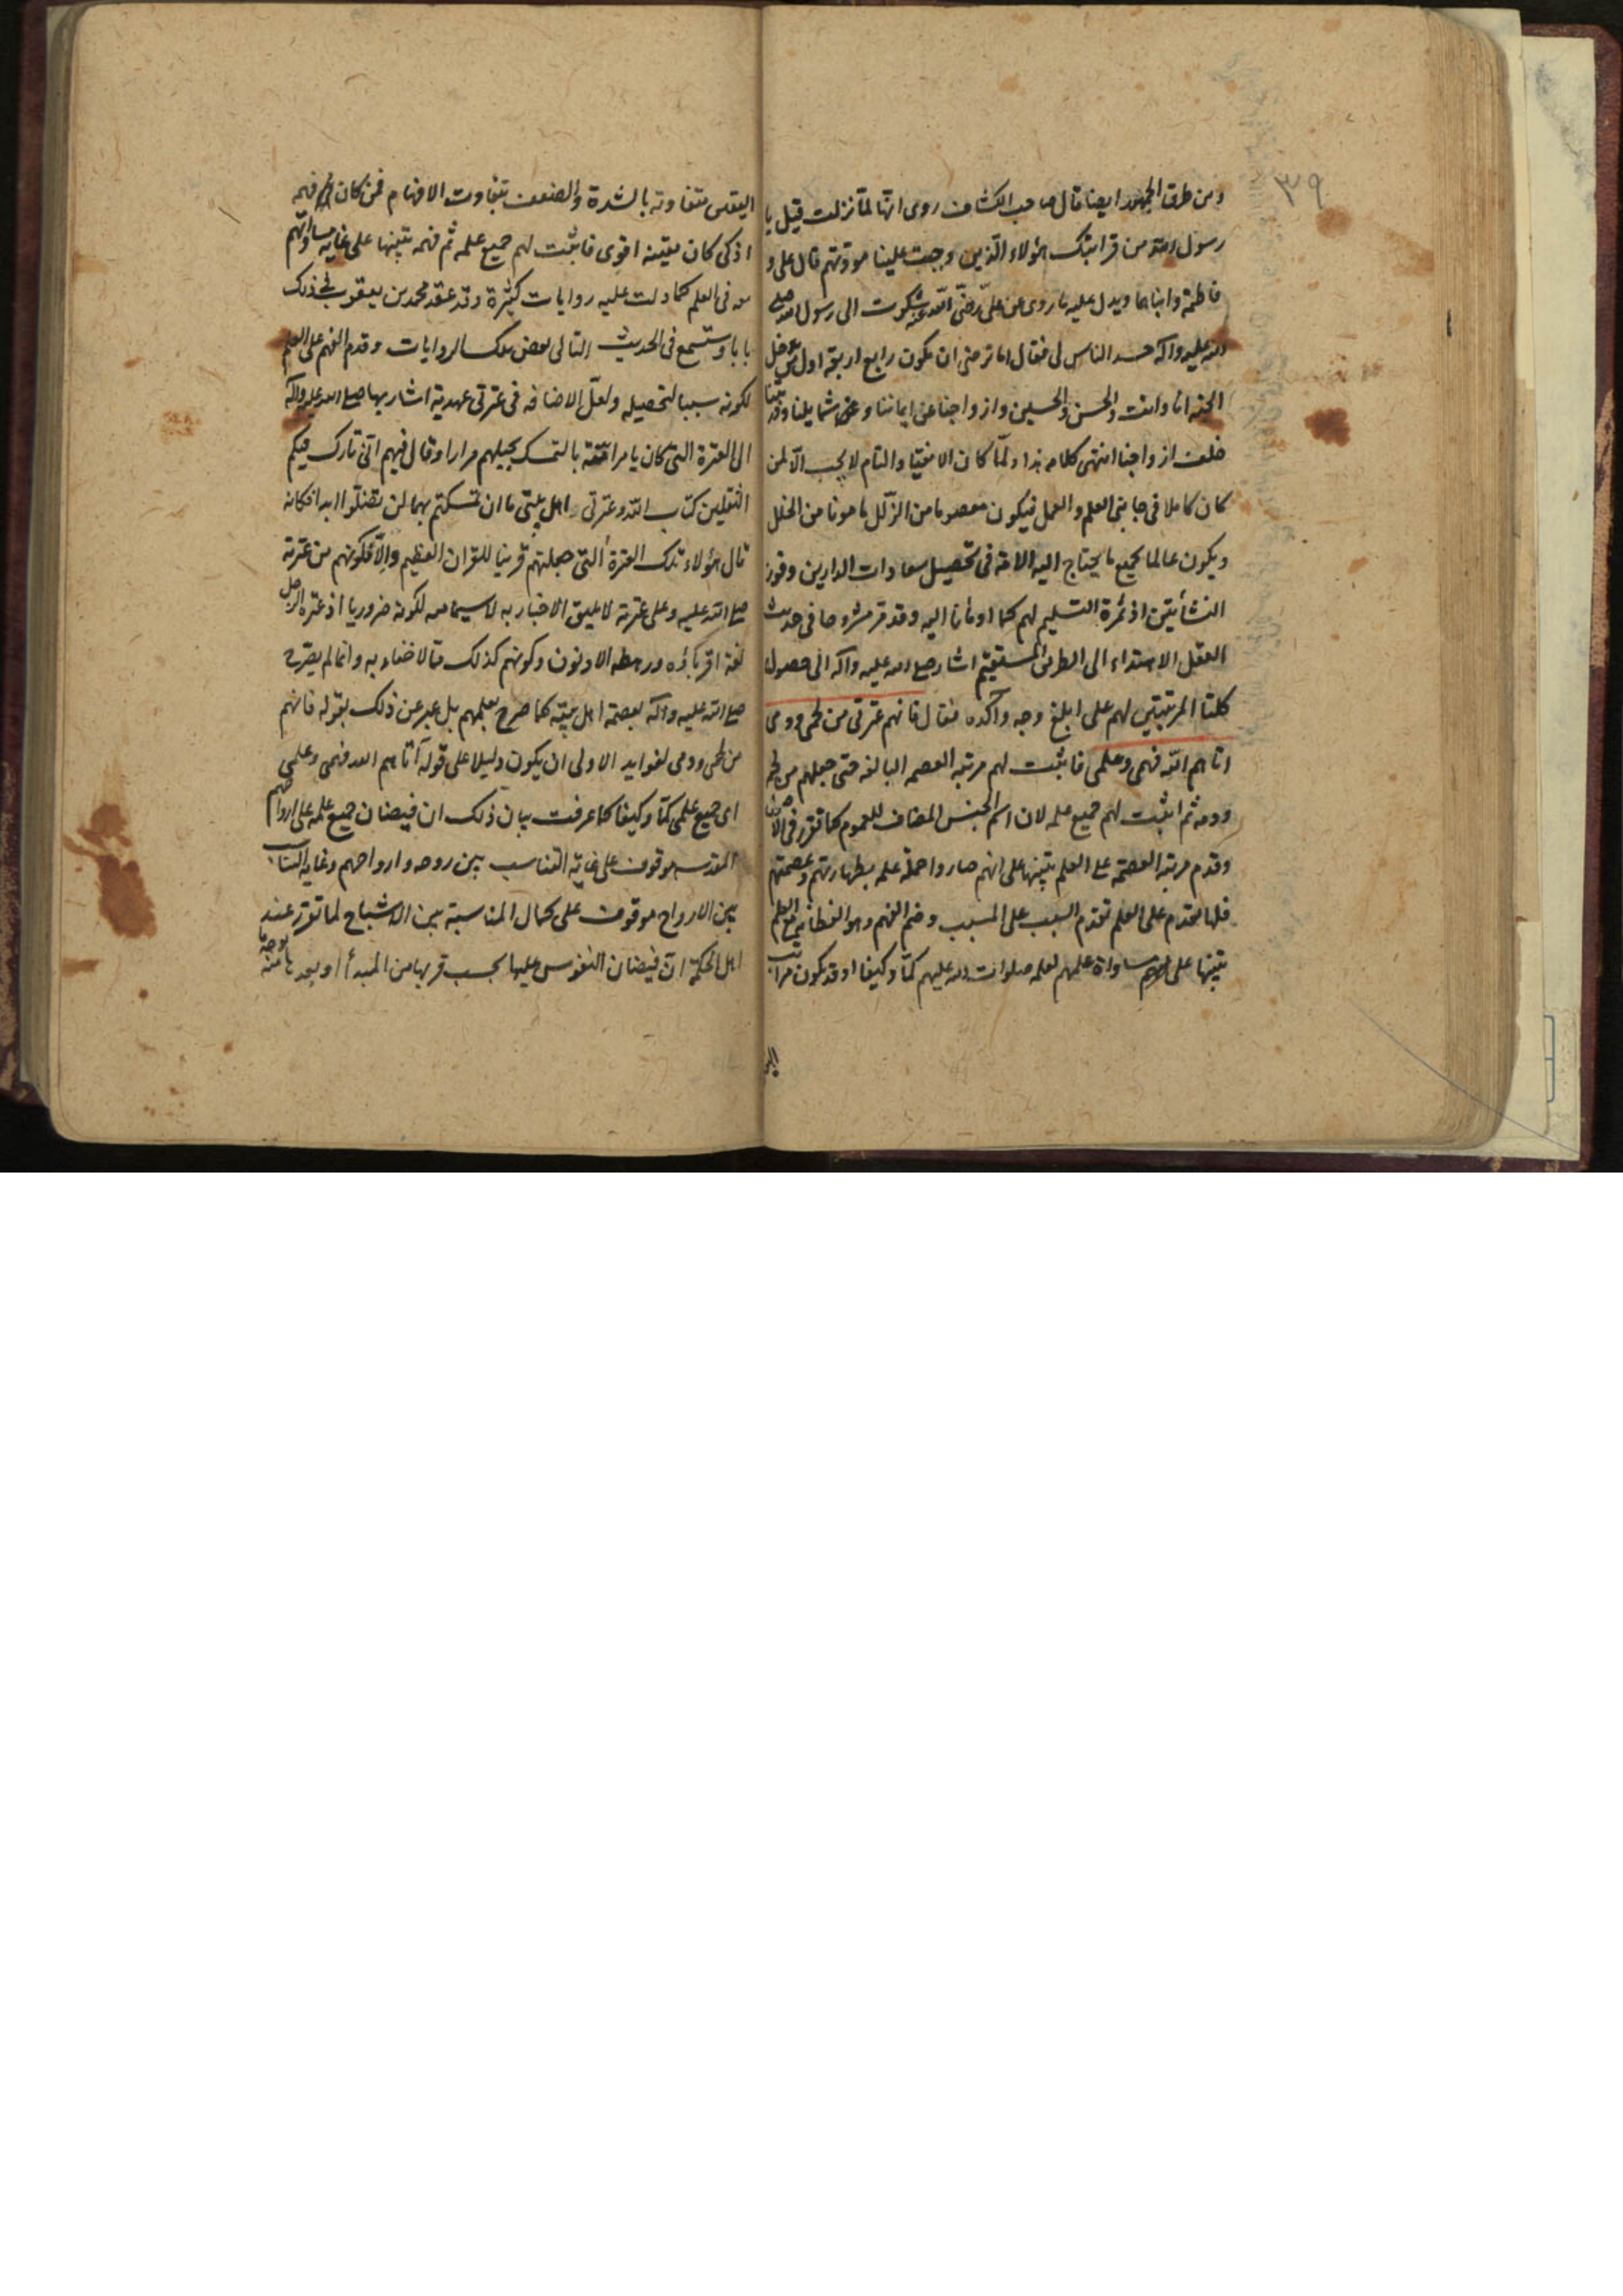 ٣٩
ومن طرق الجمهور ايضا قال صاحب الكشاف روى انها لما نزلت قيل يا
رسول الله من قرابتك هؤلاء الذين وجبت علينا مودتهم قال على و
فاطمة وابناهما ويدل عليه ما روى عن على رضى الله عنه شكوت الى رسول الله صلى
الله عليه وآله حسد الناس لى فقال اما ترضى ان تكون رابع اربعة اول من يدخل
الجنه انا وانت والحسن والحسين وازواجنا عن ايماننا وعن شمايلنا وذريتنا
خلف ازواجنا انتهى كلامه هذا ولما كان الانقياد التام لا يجب الا لمن
كان كاملا فى جانبى العلم والعمل فيكون معصوما من الزلل مامونا من الخلل
ويكون عالما بجميع ما يحتاج اليه الامة فى تحصيل سعادات الدارين وفوز
النشأتين اذ ثمرة التسليم لهم كما اومأنا اليه وقد مر مشروحا فى حديث
العقل الاهتداء الى الطريق المستقيم اشار صلى الله عليه وآله الى حصول
كلتا المرتبتين لهم على ابلغ وجه وآكده فقال فانهم عترتى من لحمى ودمى
اتاهم الله فهمى وعلمى فاثبت لهم مرتبة العصمه البالغه حتى جعلهم من لحمه
ودمه ثم اثبت لهم جميع علمه لان اسم الجنس المضاف للعموم كما تقرر فى الاصول
وقدم مرتبة العصمة على العلم تنبيها على انهم صاروا حملة علمه بطهارتهم وعصمتهم
فلها تقدم على العلم تقدم السبب على المسبب وضم الفهم وهو الفطانة مع العلم
تنبيها على مساواة علمهم لعلمه صلوات الله عليهم كما وكيفا اذ قد يكون مراتب
اليقين متفاوته بالشدة والضعف بتفاوت الافهام فمن كان فهمه
اذكى كان يقينه اقوى فاثبت لهم جميع علمه ثم فهمه تنبيها على غايه مساواتهم
معه فى العلم كما دلت عليه روايات كثيرة وقد عقد محمد بن يعقوب لذلك
بابا وستسمع فى الحديث التالى بعض تلك الروايات وقدم الفهم على العلم
لكونه سببا لتحصيله ولعل الاضافه فى عترتى عهدية اشار بها صلى الله عليه وآله
الى العترة التى كان يامر امته بالتمسك بحبلهم مرارا وقال فيهم انى تارك فيكم
الثقلين كتاب الله وعترتى اهل بيتى ما ان تمسكتم بهما لن تضلوا ابدا فكانه
قال هؤلاء تلك العترة التى جعلتهم قرينا للقران العظيم والا فكونهم من عترته
صلى الله عليه وعلى عترته لا يليق الاخبار به لا سيما معه لكونه ضروريا اذ عترة الرجل
لغة اقرباؤه ورهطه الادنون وكونهم كذلك مما لا خفاء به وانما لم يصرح
صلى الله عليه وآله بعصمة اهل بيته كما صرح بعلمهم بل عبر عن ذلك بقوله فانهم
من لحمى ودمى لفوايد الاولى ان يكون دليلا على قوله آتاهم الله فهمى وعلمى
اى جميع علمى كما وكيفا كما عرفت بيان ذلك ان فيضان جميع علمه على ارواحهم
المقدسه موقوف على غاية التناسب بين روحه وارواحهم وغايه التناسب
بين الارواح موقوف على كمال المناسبة بين الاشباح لما تقرر عند
اهل الحكمة ان فيضان النفوس عليها بحسب قربها من المبدأ وبعدها منه